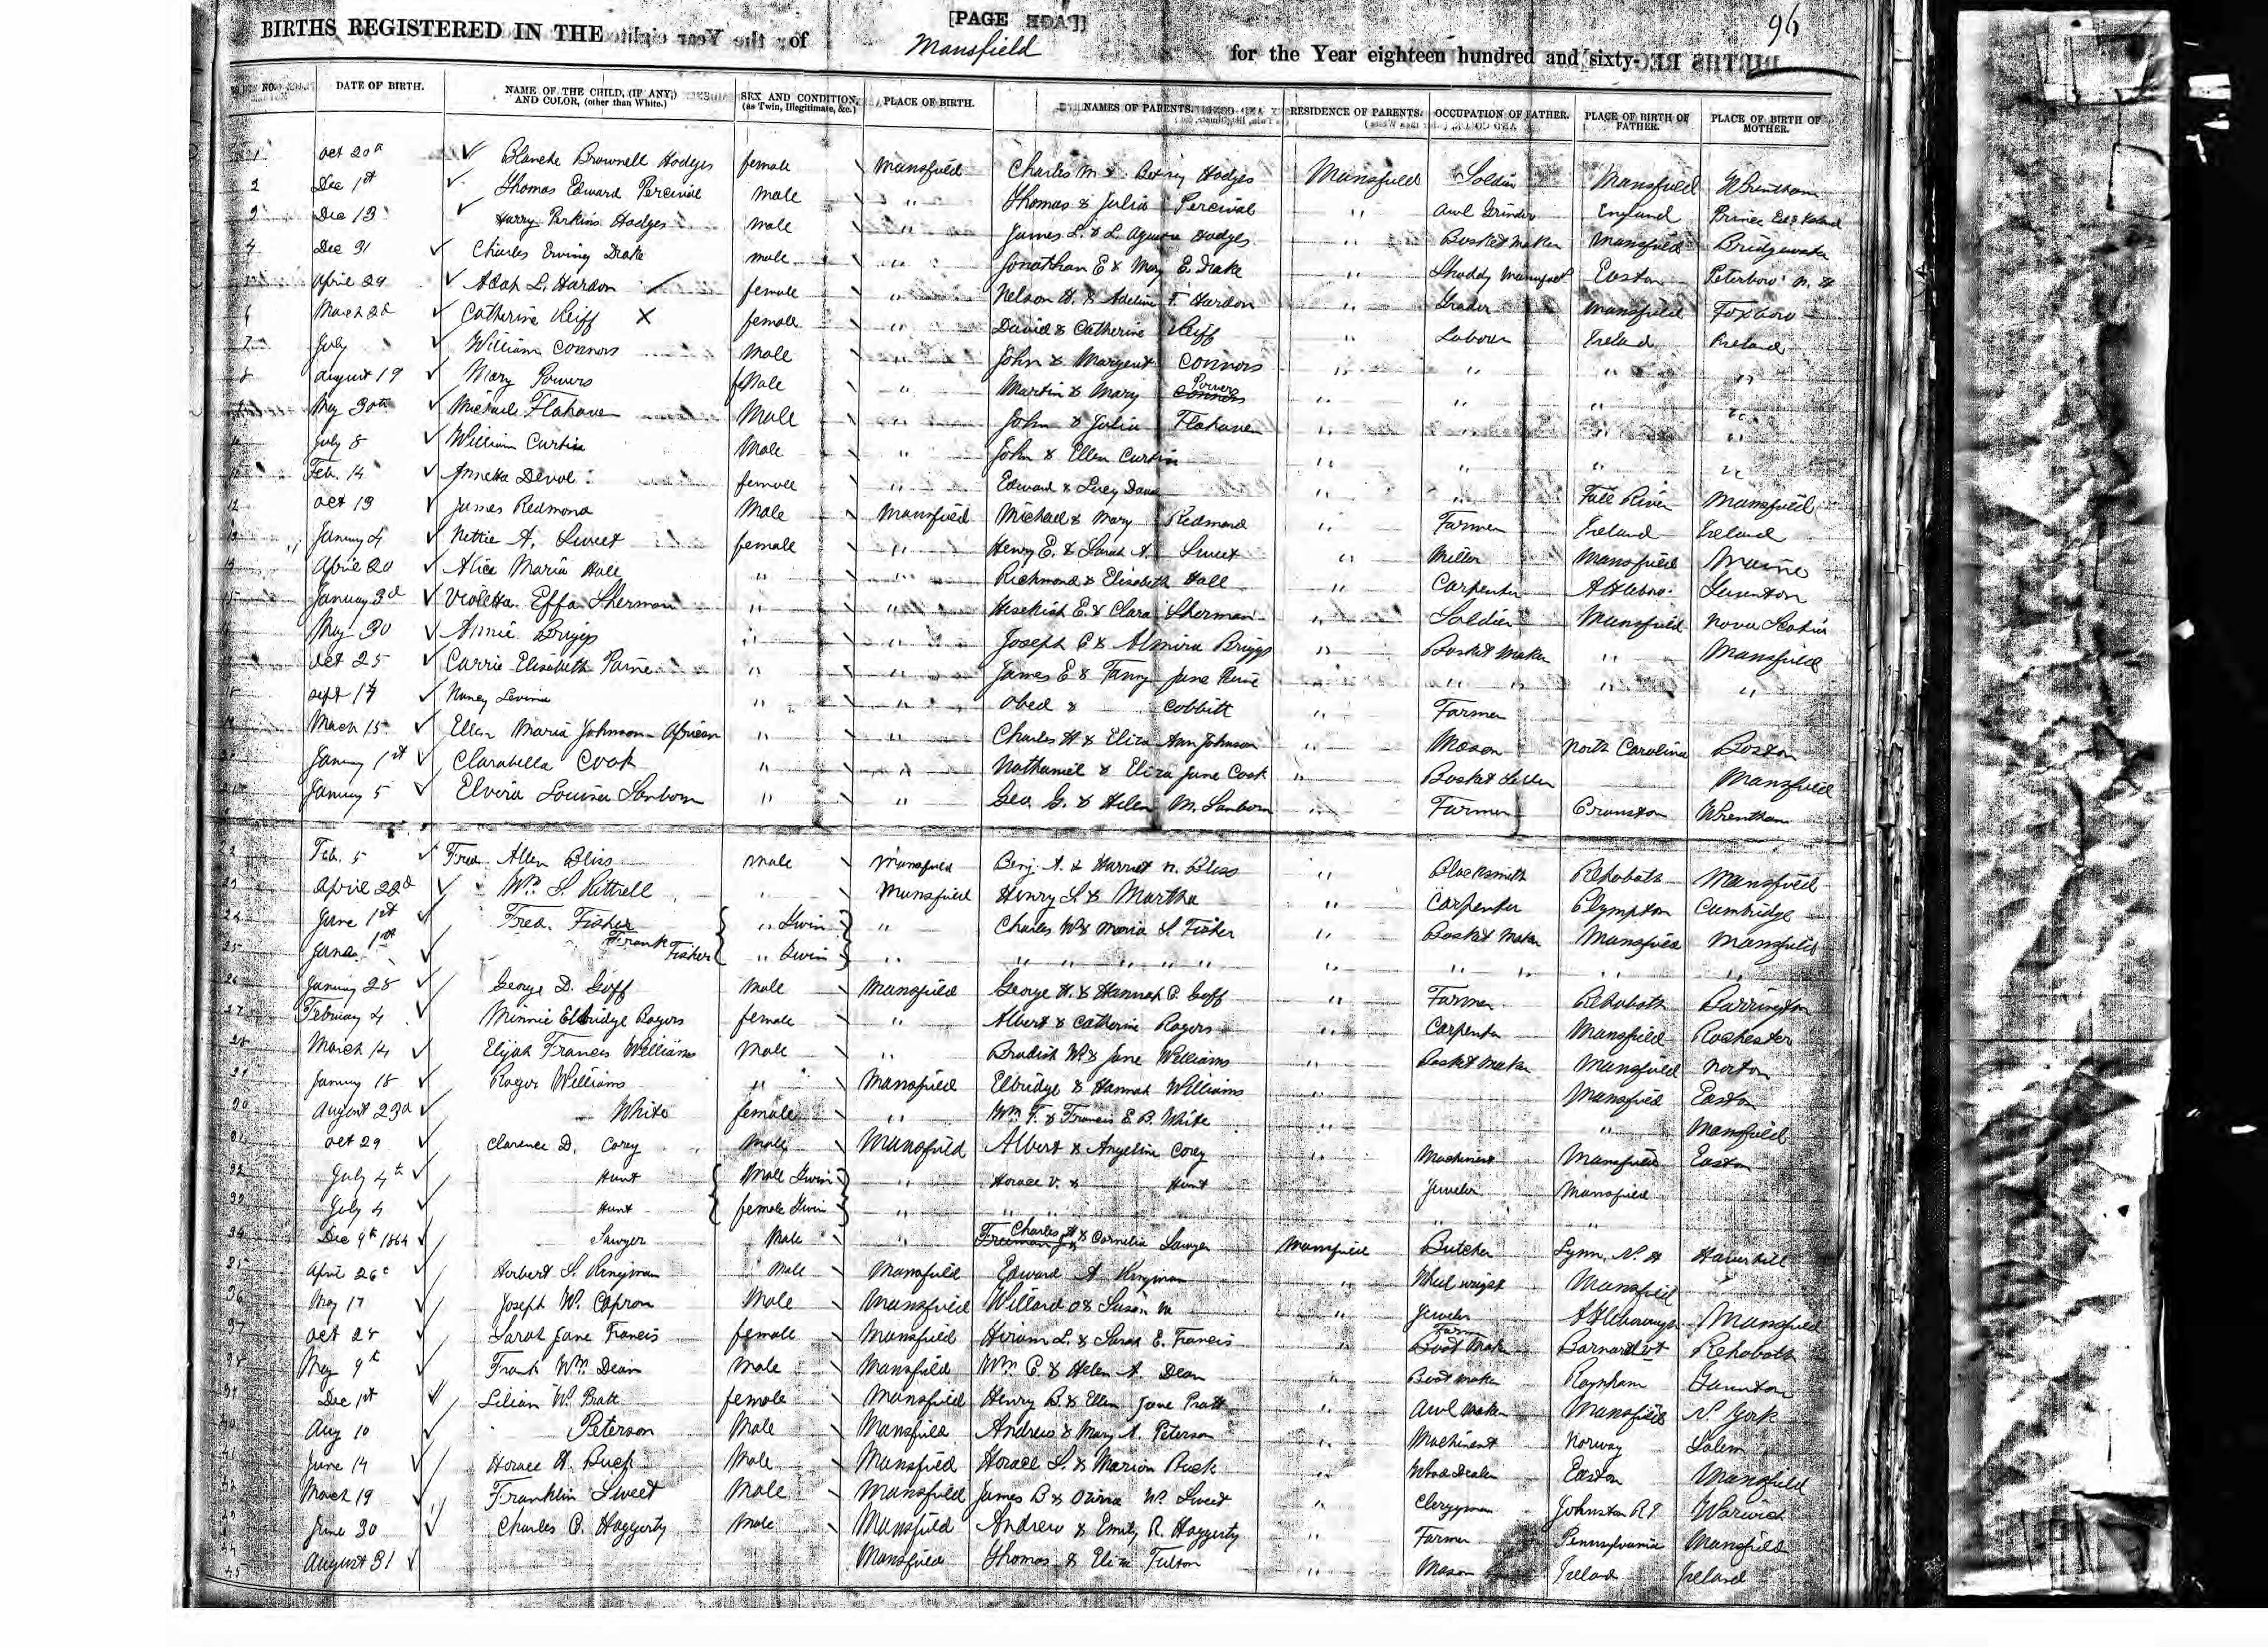 [PAGE ]
96
BIRTHS REGISTERED IN THE of Mansfield for the Year eighteen hundred and sixty-
NO. DATE OF BIRTH. NAME OF THE CHILD, (IF ANY,) AND COLOR, (other than White.) SEX AND CONDITION, (as Twin, Illegitimate, &c.) PLACE OF BIRTH. NAMES OF PARENTS. RESIDENCE OF PARENTS. OCCUPATION OF FATHER. PLACE OF BIRTH OF FATHER. PLACE OF BIRTH OF MOTHER.
1 Oct 20th Blanche Brownell Hodges female Mansfield Charles M & Betsey Hodges Mansfield Soldier Mansfield Wrentham
2 Dec 1st Thomas Edward Percival male " Thomas & Julia Percival " Awl Grinder England Prince Ed's Island
3 Dec 13 Harry Perkins Hodges male " James L. & L. Hodges " Basket Maker Mansfield Bridgewater
4 Dec 31 Charles Erving Drake male " Jonathan E & Mary E. Drake " Shoddy Easton Peterboro' N. H
5 April 29 Adah L. Hardon female " Nelson H. & Adeline F. Hardon " Mansfield Foxboro
6 March 26 Catherine Keiff X female " David & Catherine Keiff " Laborer Ireland Ireland
7 July William Connors Male " John & Margaret Connors " " " "
8 August 19 Mary Powers female " Martin & Mary Powers " " " "
May 30th Michael Flahaven Male " John & Julia Flahaven " " " "
July 8 William Curtin Male " John & Ellen Curtin " " " "
Feb. 14 Annetta Devol female " Edward & Lucy " " Fall River Mansfield
12 Oct 13 James Redmond Male Mansfield Michael & Mary Redmond " Farmer Ireland Ireland
13 January 4 Nettie A. Sweet female " Henry E. & Sarah A. Sweet " Miller Mansfield Maine
14 April 20 Alice Maria Hall " " Richmond & Elisabeth Hall " Carpenter Attleboro. Taunton
15 January 3d Violetta Effa Sherman " " Hesekiah E. & Clara Sherman " Soldier Mansfield Nova Scotia
May 30 Annie Briggs " " Joseph C & Almira Briggs " Basket Maker " Mansfield
17 Oct 25 Carrie Elisabeth Paine " " James E & Fanny Jane " " " " "
18 Sept 14 Nancy Levina " " Obed & Cobbitt " Farmer
19 March 15 Ellen Maria Johnson African " " Charles H & Eliza Ann Johnson Mason North Carolina Boston
20 January 1st Clarabella Cook " " Nathaniel & Eliza Jane Cook " Basket Seller Mansfield
21 January 5 Elvira Louisa Sanborn " " Geo. G. & Helen M. Sanborn " Farmer Cranston Wrentham
22 Feb. 5 Fred Allen Bliss male Mansfield Benj. A. & Harriet N. Bliss " Blacksmith Rehoboth Mansfield
23 April 22d Wm. S. Kittrell " Mansfield Henry S & Martha " Carpenter Plympton Cambridge
24 June 1st Fred. Fisher " Twin " Charles W & Maria S Fisher " Basket Maker Mansfield Mansfield
25 June 1st Frank Fisher " Twin " " " " " " " " " " " "
26 January 28 George D. Goff Male Mansfield George H. & Hannah C. Goff " Farmer Rehoboth Barrington
27 February 4 Minnie Elbridge Rogers female " Albert & Catherine Rogers " Carpenter Mansfield Rochester
28 March 14 Elijah Francis Williams Male " Bradish W. & Jane Williams " Basket Maker Mansfield Norton
29 January 18 Roger Williams " Mansfield Elbridge & Hannah Williams " Mansfield Easton
30 August 23d White female " Wm. T. & Francis E. B. White " " Mansfield
31 Oct 29 Clarence D. Corey Male Mansfield Albert & Angeline Corey " Machinist Mansfield Easton
32 July 4th Hunt Male Twin " Horace V. & Hunt Jeweler Mansfield
33 July 4 Hunt female Twin " " " " " "
34 Dec 9th 1864 Sawyer Male " Charles H & Cornelia Sawyer Mansfield Butcher Lynn, N. H Haverhill
35 April 26th Herbert S. Kingman Male Mansfield Edward A Kingman " Wheelwright Mansfield
36 May 17 Joseph W. Capron Male Mansfield Willard O & Susan M " Jeweler Attleborough Mansfield
37 Oct 28 Sarah Jane Francis female Mansfield Hiram L. & Sarah E. Francis " Farm Boot Maker Barnard Vt Rehoboth
38 May 9th Frank Wm. Dean Male Mansfield Wm. C. & Helen A. Dean " Boot maker Raynham Taunton
39 Dec 1st Lilian W. Pratt female Mansfield Henry B. & Ellen Jane Pratt " Awl Maker Mansfield N. York
40 Aug 10 Peterson Male Mansfield Andrew & Mary A. Peterson " Machinist Norway Salem
41 June 14 Horace H. Buck Male Mansfield Horace S. & Marion Buck " Wood Dealer Easton Mansfield
42 March 19 Franklin Sweet Male Mansfield James B & W. Sweet " Clergyman Johnston R I Warwick
43 June 30 Charles C. Haggerty Male Mansfield Andrew & Emily R. Haggerty " Farmer Pennsylvania Mansfield
44 August 31 Mansfield Thomas & Eliza Fulton " Mason Ireland Ireland
45